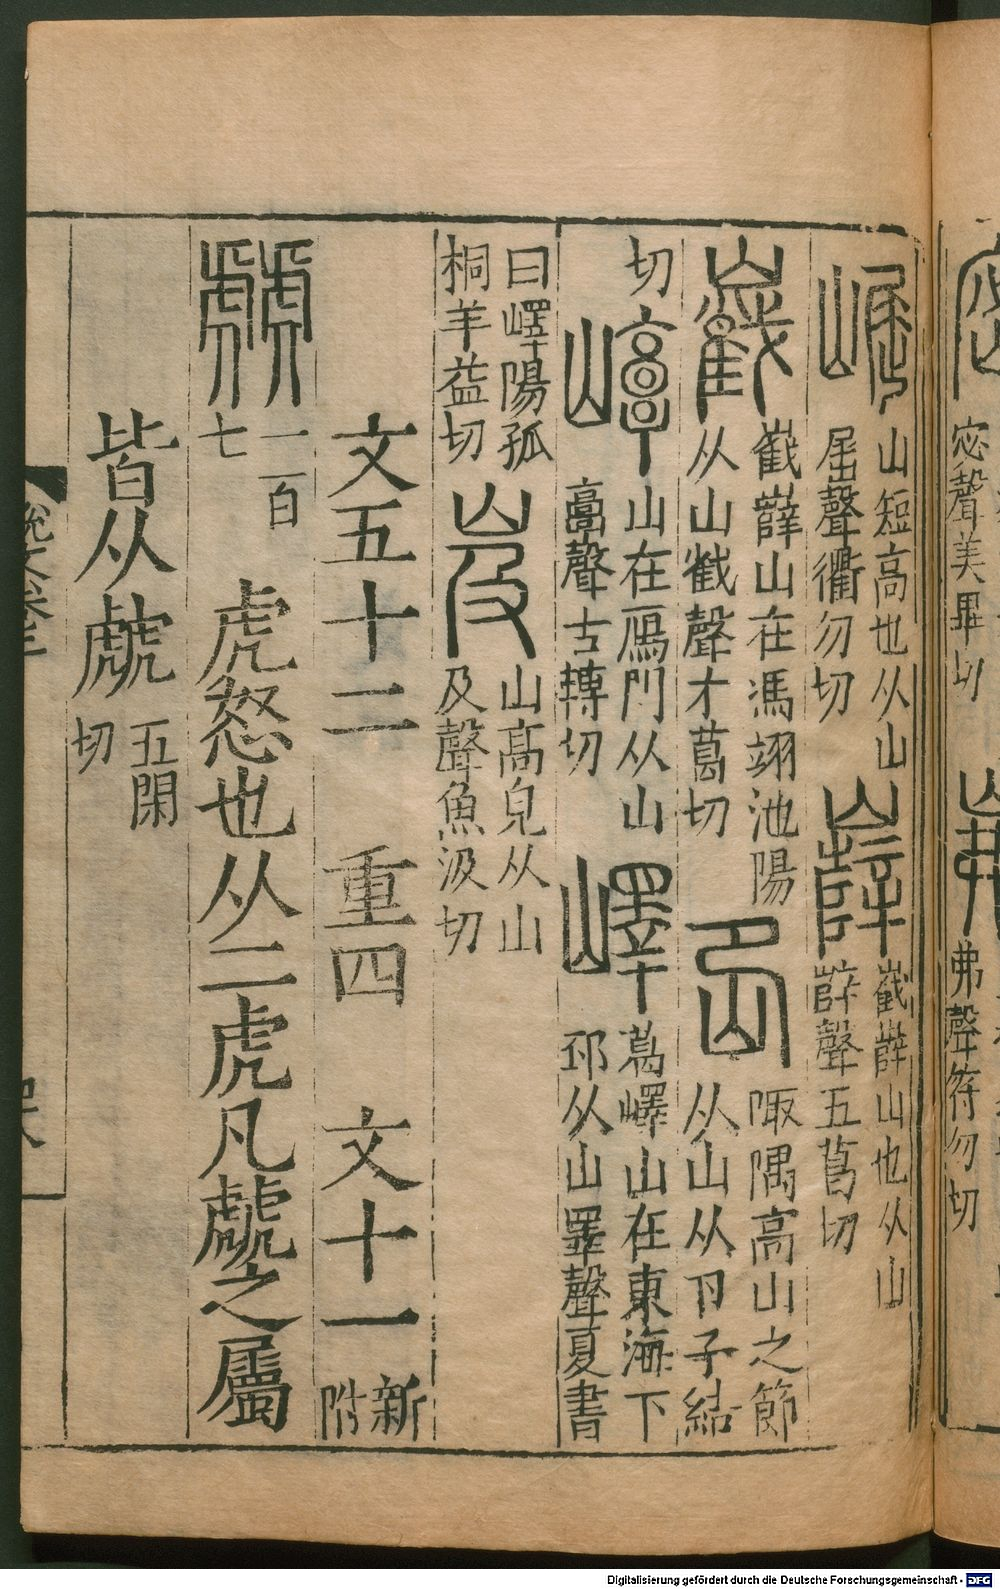 宓聲美畢切
弗聲符勿切
崛 山短高也从山屈聲衢勿切 嶭 巀嶭山也从山辥聲五葛切
巀 巀嶭山在馮翊池陽从山截聲才葛切 岊 陬隅高山之節从山从卪子結
切 崞 山在鴈門从山𩫏聲古轉切 嶧 葛嶧山在東海下邳从山睪聲夏書
曰嶧陽孤桐羊益切 岌 山高皃从山及聲魚汲切
文五十二 重四 文十一新附
虤 一百七 虎怒也从二虎凡虤之屬
皆从虤五閑切
Digitalisierung gefördert durch die Deutsche Forschungsgemeinschaft - DFG